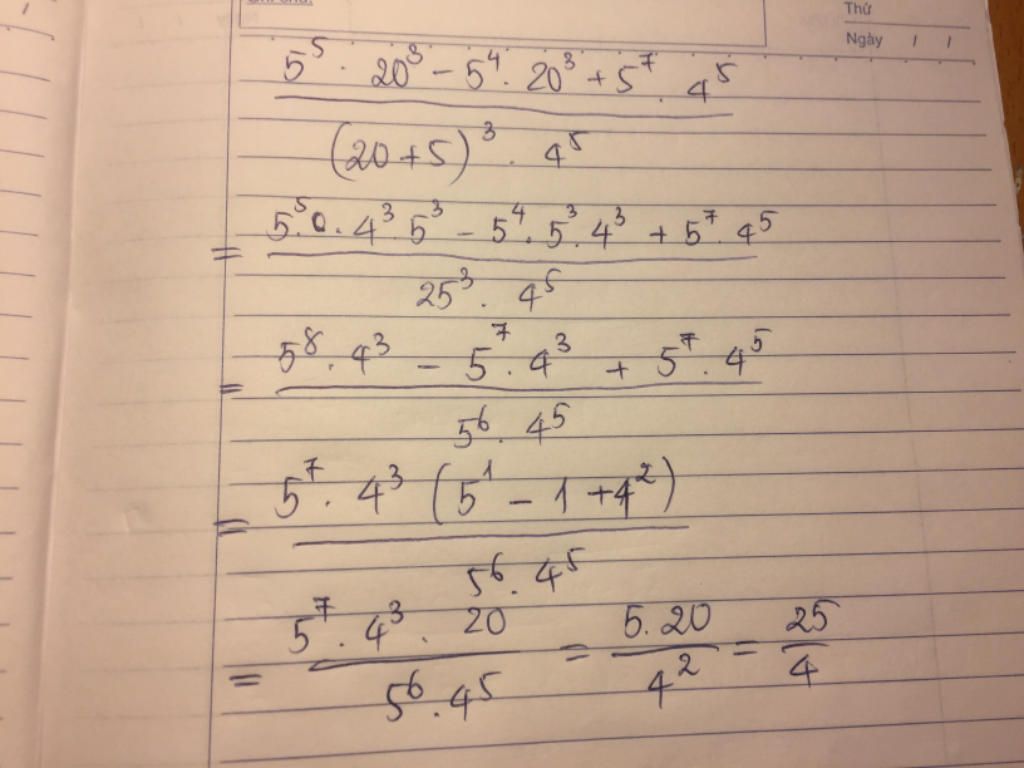 Thứ
Ngày / /
5⁵ . 20³ − 5⁴ . 20³ + 5⁷ . 4⁵
(20 + 5)³ . 4⁵
= 5⁵ . 4³ . 5³ − 5⁴ . 5³ . 4³ + 5⁷ . 4⁵
25³ . 4⁵
= 5⁸ . 4³ − 5⁷ . 4³ + 5⁷ . 4⁵
5⁶ . 4⁵
= 5⁷ . 4³ (5¹ − 1 + 4²)
5⁶ . 4⁵
= 5⁷ . 4³ . 20 / 5⁶ . 4⁵ = 5 . 20 / 4² = 25 / 4